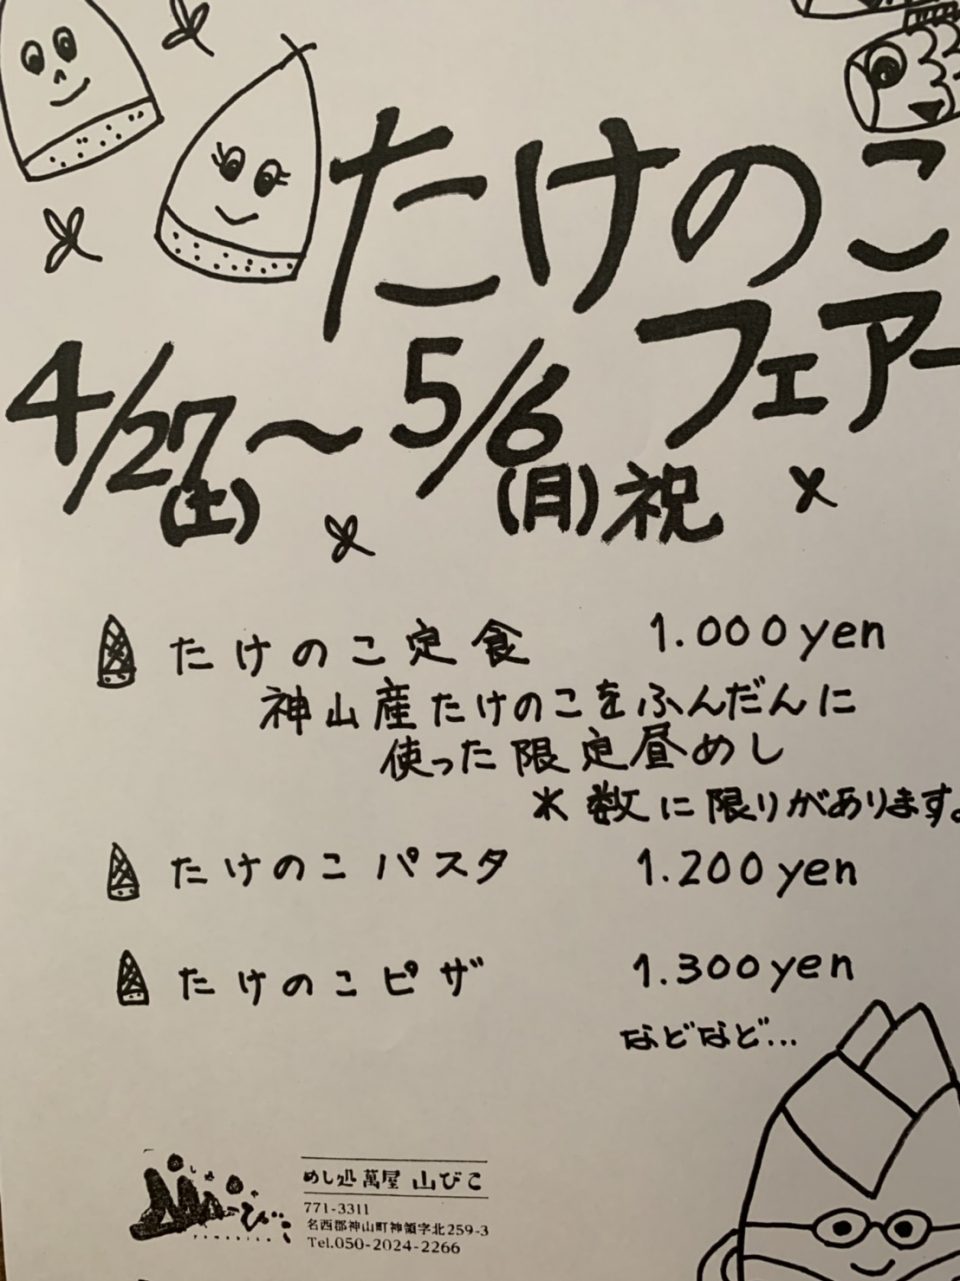 たけのこ
フェアー
4/27(土)～5/6(月)祝
たけのこ定食 1.000yen
神山産たけのこをふんだんに
使った限定昼めし
*数に限りがあります。
たけのこパスタ 1.200yen
たけのこピザ 1.300yen
などなど...
めし処 萬屋 山びこ
771-3311
名西郡神山町神領字北259-3
Tel.050-2024-2266